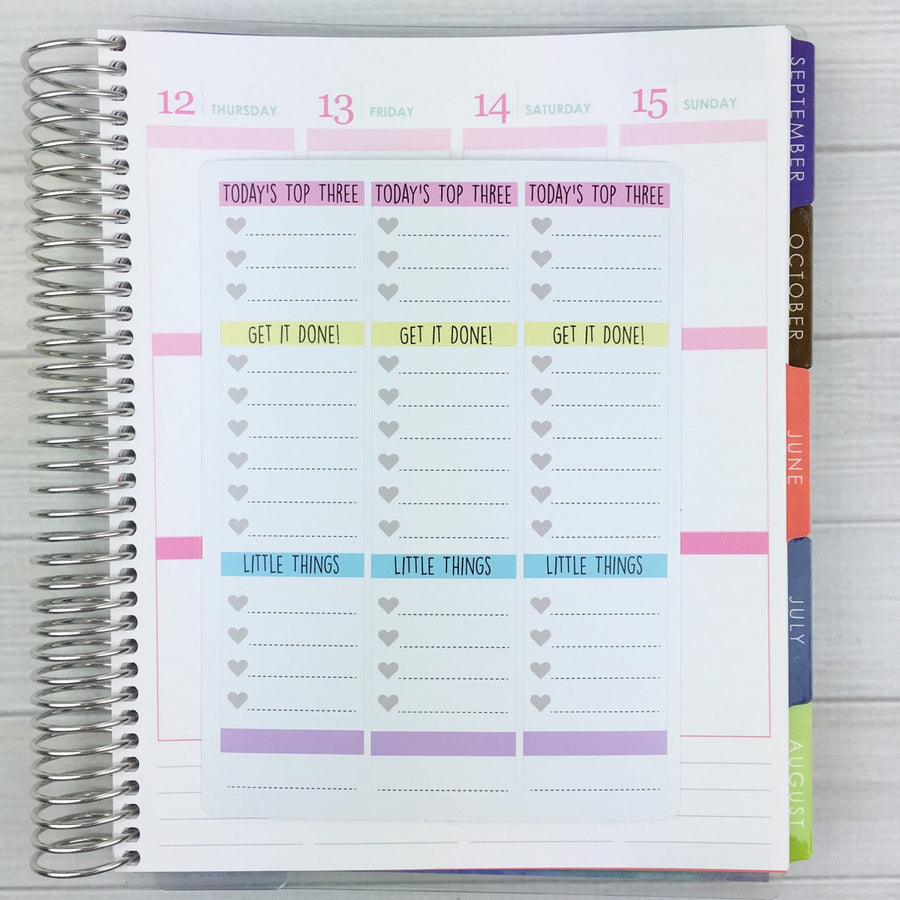 12 THURSDAY 13 FRIDAY 14 SATURDAY 15 SUNDAY
TODAY'S TOP THREE TODAY'S TOP THREE TODAY'S TOP THREE
GET IT DONE! GET IT DONE! GET IT DONE!
LITTLE THINGS LITTLE THINGS LITTLE THINGS
SEPTEMBER
OCTOBER
JUNE
JULY
AUGUST